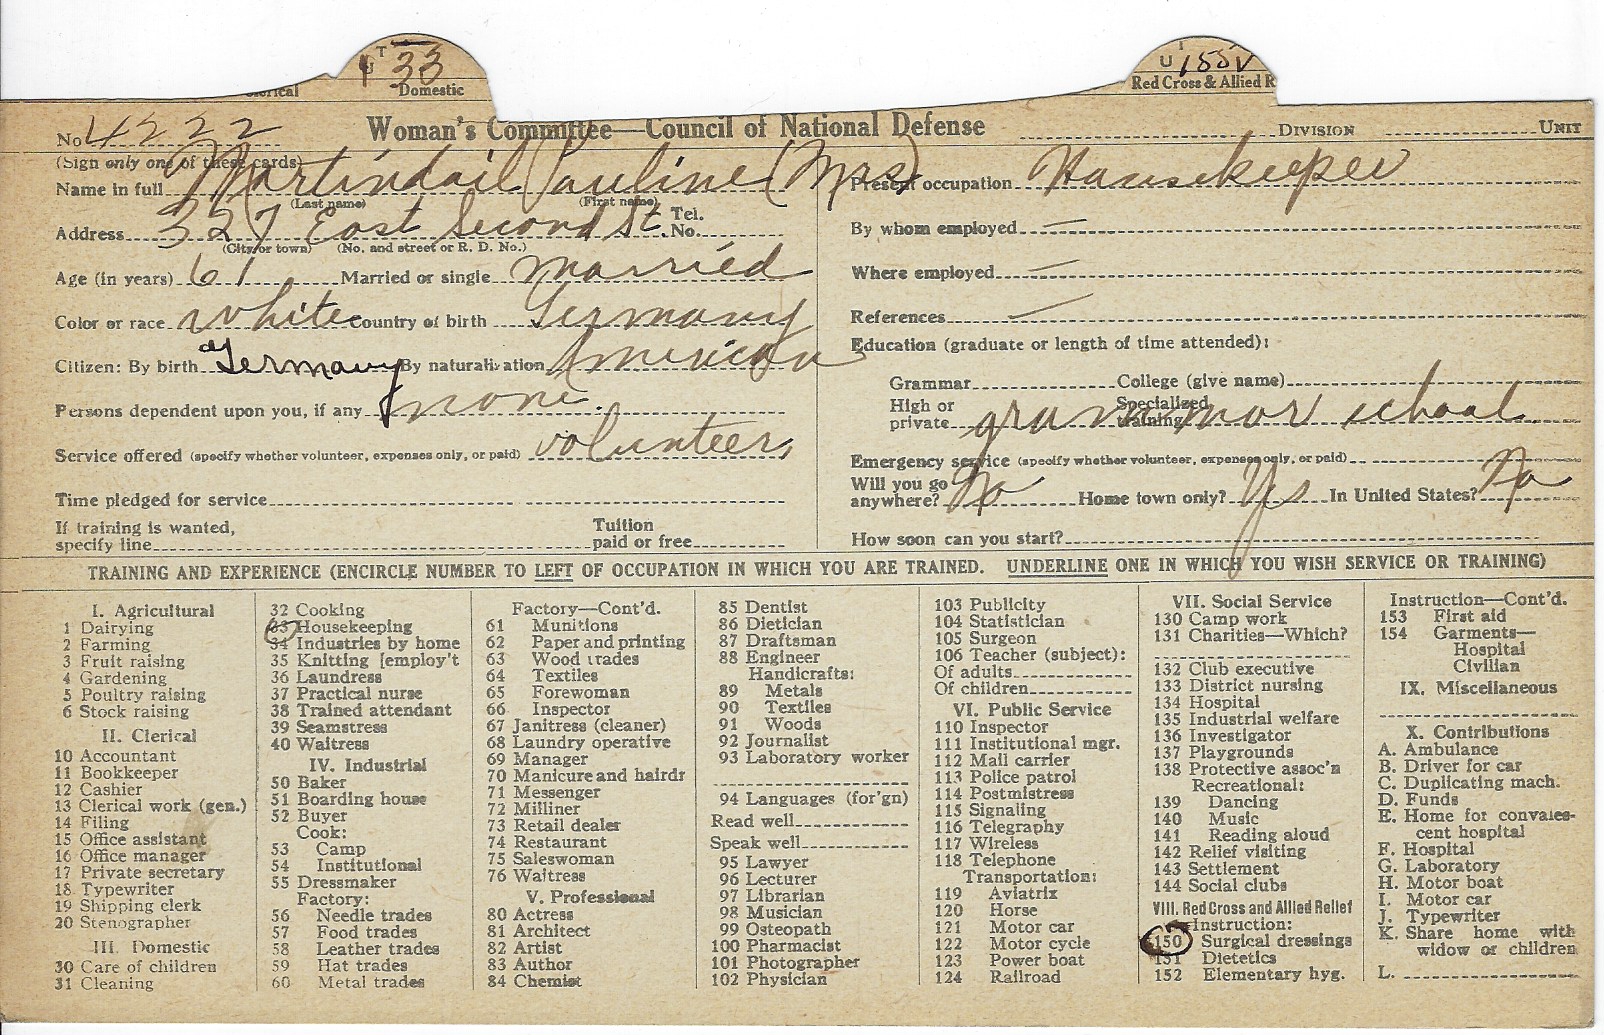 T
U 33
Clerical
Domestic
T
U 155 V
Red Cross & Allied R
Woman's Committee—Council of National Defense
DIVISION
UNIT
No. 4222
(Sign only one of these cards)
Name in full Martindail Pauline (Mrs)
(Last name) (First name)
Address 327 East Second St. Tel. No.
(City or town) (No. and street or R. D. No.)
Age (in years) 61 Married or single married
Color or race white Country of birth Germany
Citizen: By birth Germany By naturalization American
Persons dependent upon you, if any none.
Service offered (specify whether volunteer, expenses only, or paid) volunteer
Time pledged for service
If training is wanted,
specify line
Tuition
paid or free
Present occupation Housekeeper
By whom employed —
Where employed —
References —
Education (graduate or length of time attended):
Grammar College (give name)
High or
private
Specialized
training
grammar school
Emergency service (specify whether volunteer, expenses only, or paid)
Will you go
anywhere? No Home town only? Yes In United States? No
How soon can you start?
TRAINING AND EXPERIENCE (ENCIRCLE NUMBER TO LEFT OF OCCUPATION IN WHICH YOU ARE TRAINED. UNDERLINE ONE IN WHICH YOU WISH SERVICE OR TRAINING)
I. Agricultural
1 Dairying
2 Farming
3 Fruit raising
4 Gardening
5 Poultry raising
6 Stock raising
II. Clerical
10 Accountant
11 Bookkeeper
12 Cashier
13 Clerical work (gen.)
14 Filing
15 Office assistant
16 Office manager
17 Private secretary
18 Typewriter
19 Shipping clerk
20 Stenographer
III. Domestic
30 Care of children
31 Cleaning
32 Cooking
33 Housekeeping
34 Industries by home
35 Knitting [employ't
36 Laundress
37 Practical nurse
38 Trained attendant
39 Seamstress
40 Waitress
IV. Industrial
50 Baker
51 Boarding house
52 Buyer
Cook:
53 Camp
54 Institutional
55 Dressmaker
Factory:
56 Needle trades
57 Food trades
58 Leather trades
59 Hat trades
60 Metal trades
Factory—Cont'd.
61 Munitions
62 Paper and printing
63 Wood trades
64 Textiles
65 Forewoman
66 Inspector
67 Janitress (cleaner)
68 Laundry operative
69 Manager
70 Manicure and hairdr
71 Messenger
72 Milliner
73 Retail dealer
74 Restaurant
75 Saleswoman
76 Waitress
V. Professional
80 Actress
81 Architect
82 Artist
83 Author
84 Chemist
85 Dentist
86 Dietician
87 Draftsman
88 Engineer
Handicrafts:
89 Metals
90 Textiles
91 Woods
92 Journalist
93 Laboratory worker
94 Languages (for'gn)
Read well
Speak well
95 Lawyer
96 Lecturer
97 Librarian
98 Musician
99 Osteopath
100 Pharmacist
101 Photographer
102 Physician
103 Publicity
104 Statistician
105 Surgeon
106 Teacher (subject):
Of adults
Of children
VI. Public Service
110 Inspector
111 Institutional mgr.
112 Mail carrier
113 Police patrol
114 Postmistress
115 Signaling
116 Telegraphy
117 Wireless
118 Telephone
Transportation:
119 Aviatrix
120 Horse
121 Motor car
122 Motor cycle
123 Power boat
124 Railroad
VII. Social Service
130 Camp work
131 Charities—Which?
132 Club executive
133 District nursing
134 Hospital
135 Industrial welfare
136 Investigator
137 Playgrounds
138 Protective assoc'n
Recreational:
139 Dancing
140 Music
141 Reading aloud
142 Relief visiting
143 Settlement
144 Social clubs
VIII. Red Cross and Allied Relief
Instruction:
150 Surgical dressings
151 Dietetics
152 Elementary hyg.
Instruction—Cont'd.
153 First aid
154 Garments—
Hospital
Civilian
IX. Miscellaneous
X. Contributions
A. Ambulance
B. Driver for car
C. Duplicating mach.
D. Funds
E. Home for convales-
cent hospital
F. Hospital
G. Laboratory
H. Motor boat
I. Motor car
J. Typewriter
K. Share home with
widow or children
L.